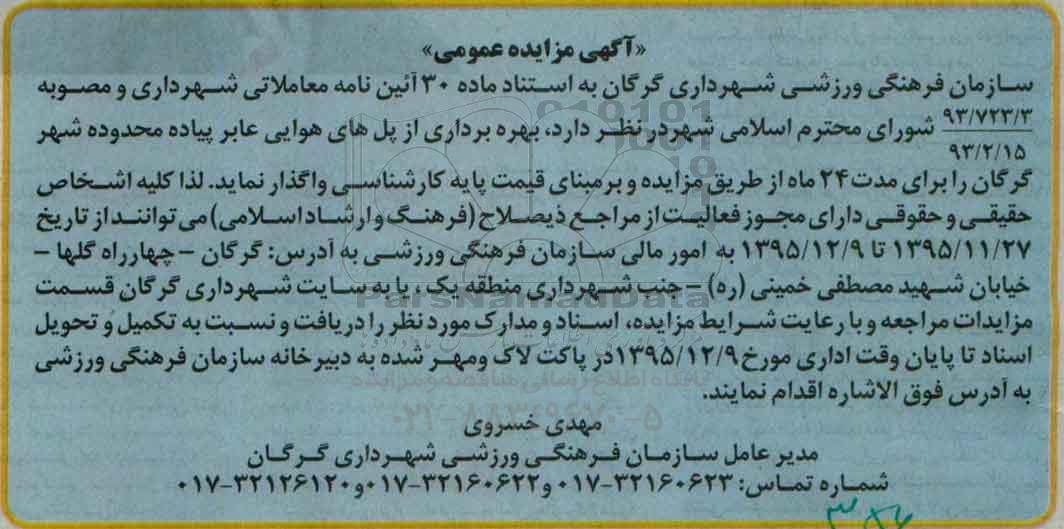 «آگهی مزایده عمومی»
سازمان فرهنگی ورزشی شهرداری گرگان به استناد ماده ۳۰ آئین نامه معاملاتی شهرداری و مصوبه
۹۳/۷۲۳/۳
۹۳/۲/۱۵
شورای محترم اسلامی شهردر نظر دارد، بهره برداری از پل های هوایی عابر پیاده محدوده شهر
گرگان را برای مدت ۲۴ ماه از طریق مزایده و بر مبنای قیمت پایه کارشناسی واگذار نماید. لذا کلیه اشخاص
حقیقی و حقوقی دارای مجوز فعالیت از مراجع ذیصلاح (فرهنگ و ارشاد اسلامی) می توانند از تاریخ
۱۳۹۵/۱۱/۲۷ تا ۱۳۹۵/۱۲/۹ به امور مالی سازمان فرهنگی ورزشی به آدرس: گرگان – چهارراه گلها –
خیابان شهید مصطفی خمینی (ره) – جنب شهرداری منطقه یک، یا به سایت شهرداری گرگان قسمت
مزایدات مراجعه و با رعایت شرایط مزایده، اسناد و مدارک مورد نظر را دریافت و نسبت به تکمیل و تحویل
اسناد تا پایان وقت اداری مورخ ۱۳۹۵/۱۲/۹ در پاکت لاک ومهر شده به دبیرخانه سازمان فرهنگی ورزشی
به آدرس فوق الاشاره اقدام نمایند.
مهدی خسروی
مدیر عامل سازمان فرهنگی ورزشی شهرداری گرگان
شماره تماس: ۳۲۱۶۰۶۲۳-۰۱۷ و ۳۲۱۶۰۶۲۲-۰۱۷ و ۳۲۱۲۶۱۲۰-۰۱۷
ParsNamadData
پایگاه اطلاع رسانی مناقصه و مزایده
۰۲۱-۸۸۳۴۹۶۷۰-۵